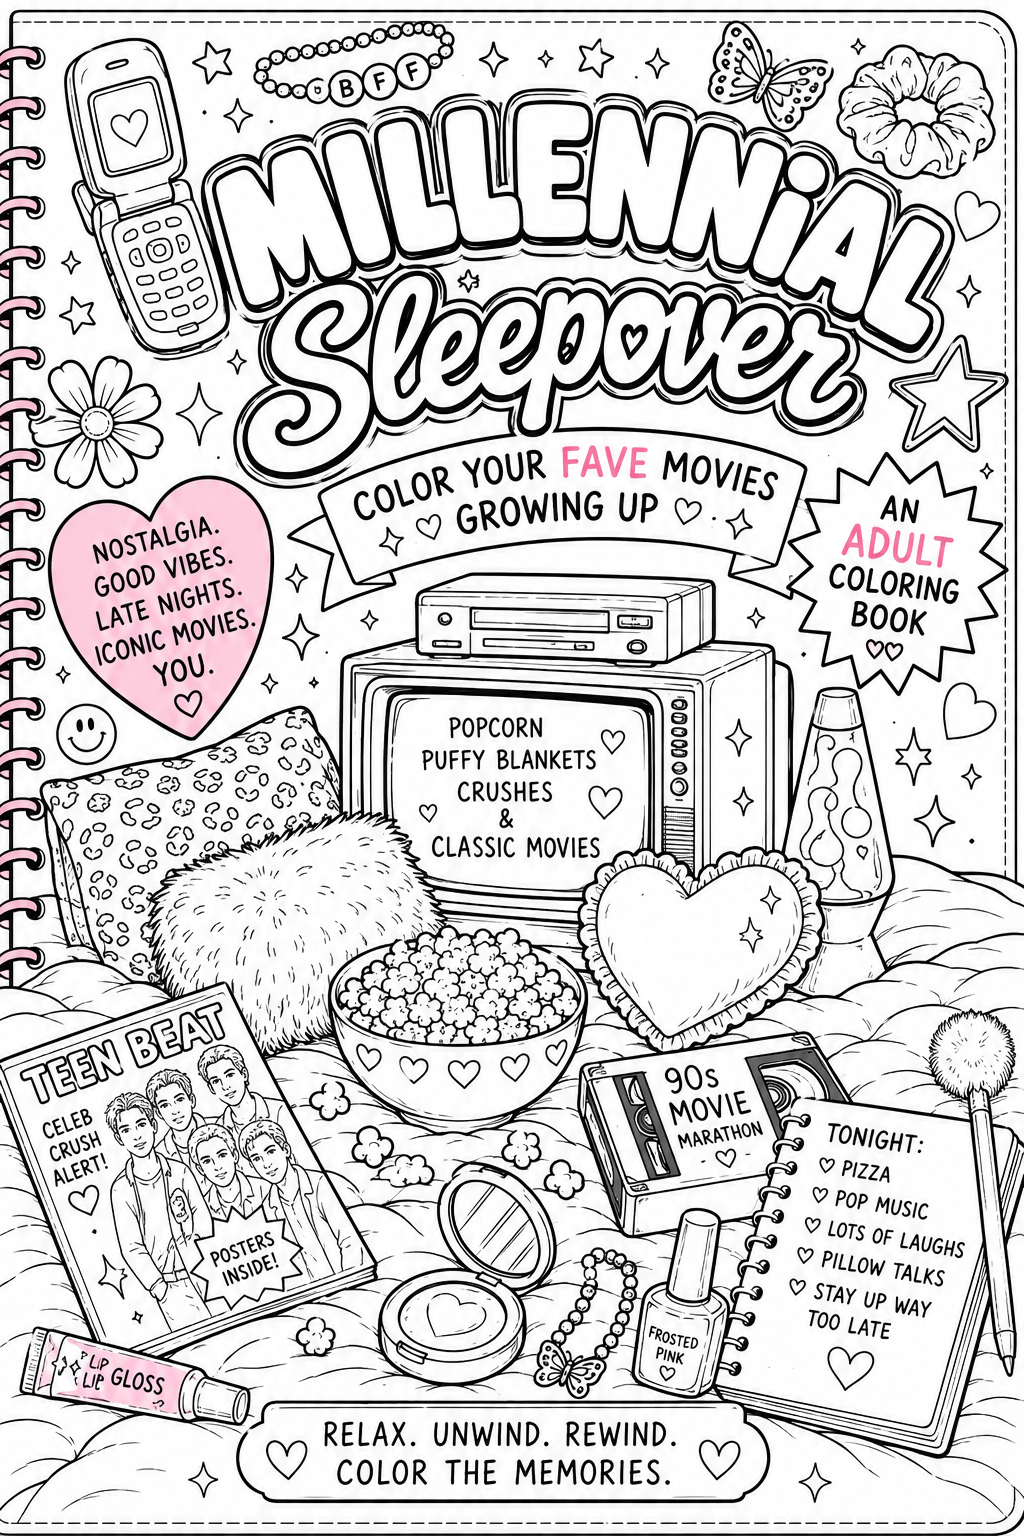 BFF
MILLENNiAL
Sleepover
COLOR YOUR FAVE MOVIES
GROWING UP
AN
ADULT
COLORING
BOOK
NOSTALGIA.
GOOD VIBES.
LATE NIGHTS.
ICONIC MOVIES.
YOU.
POPCORN
PUFFY BLANKETS
CRUSHES
&
CLASSIC MOVIES
TEEN BEAT
CELEB
CRUSH
ALERT!
POSTERS
INSIDE!
90s
MOVIE
MARATHON
TONIGHT:
PIZZA
POP MUSIC
LOTS OF LAUGHS
PILLOW TALKS
STAY UP WAY
TOO LATE
FROSTED
PINK
LIP
LIP GLOSS
RELAX. UNWIND. REWIND.
COLOR THE MEMORIES.